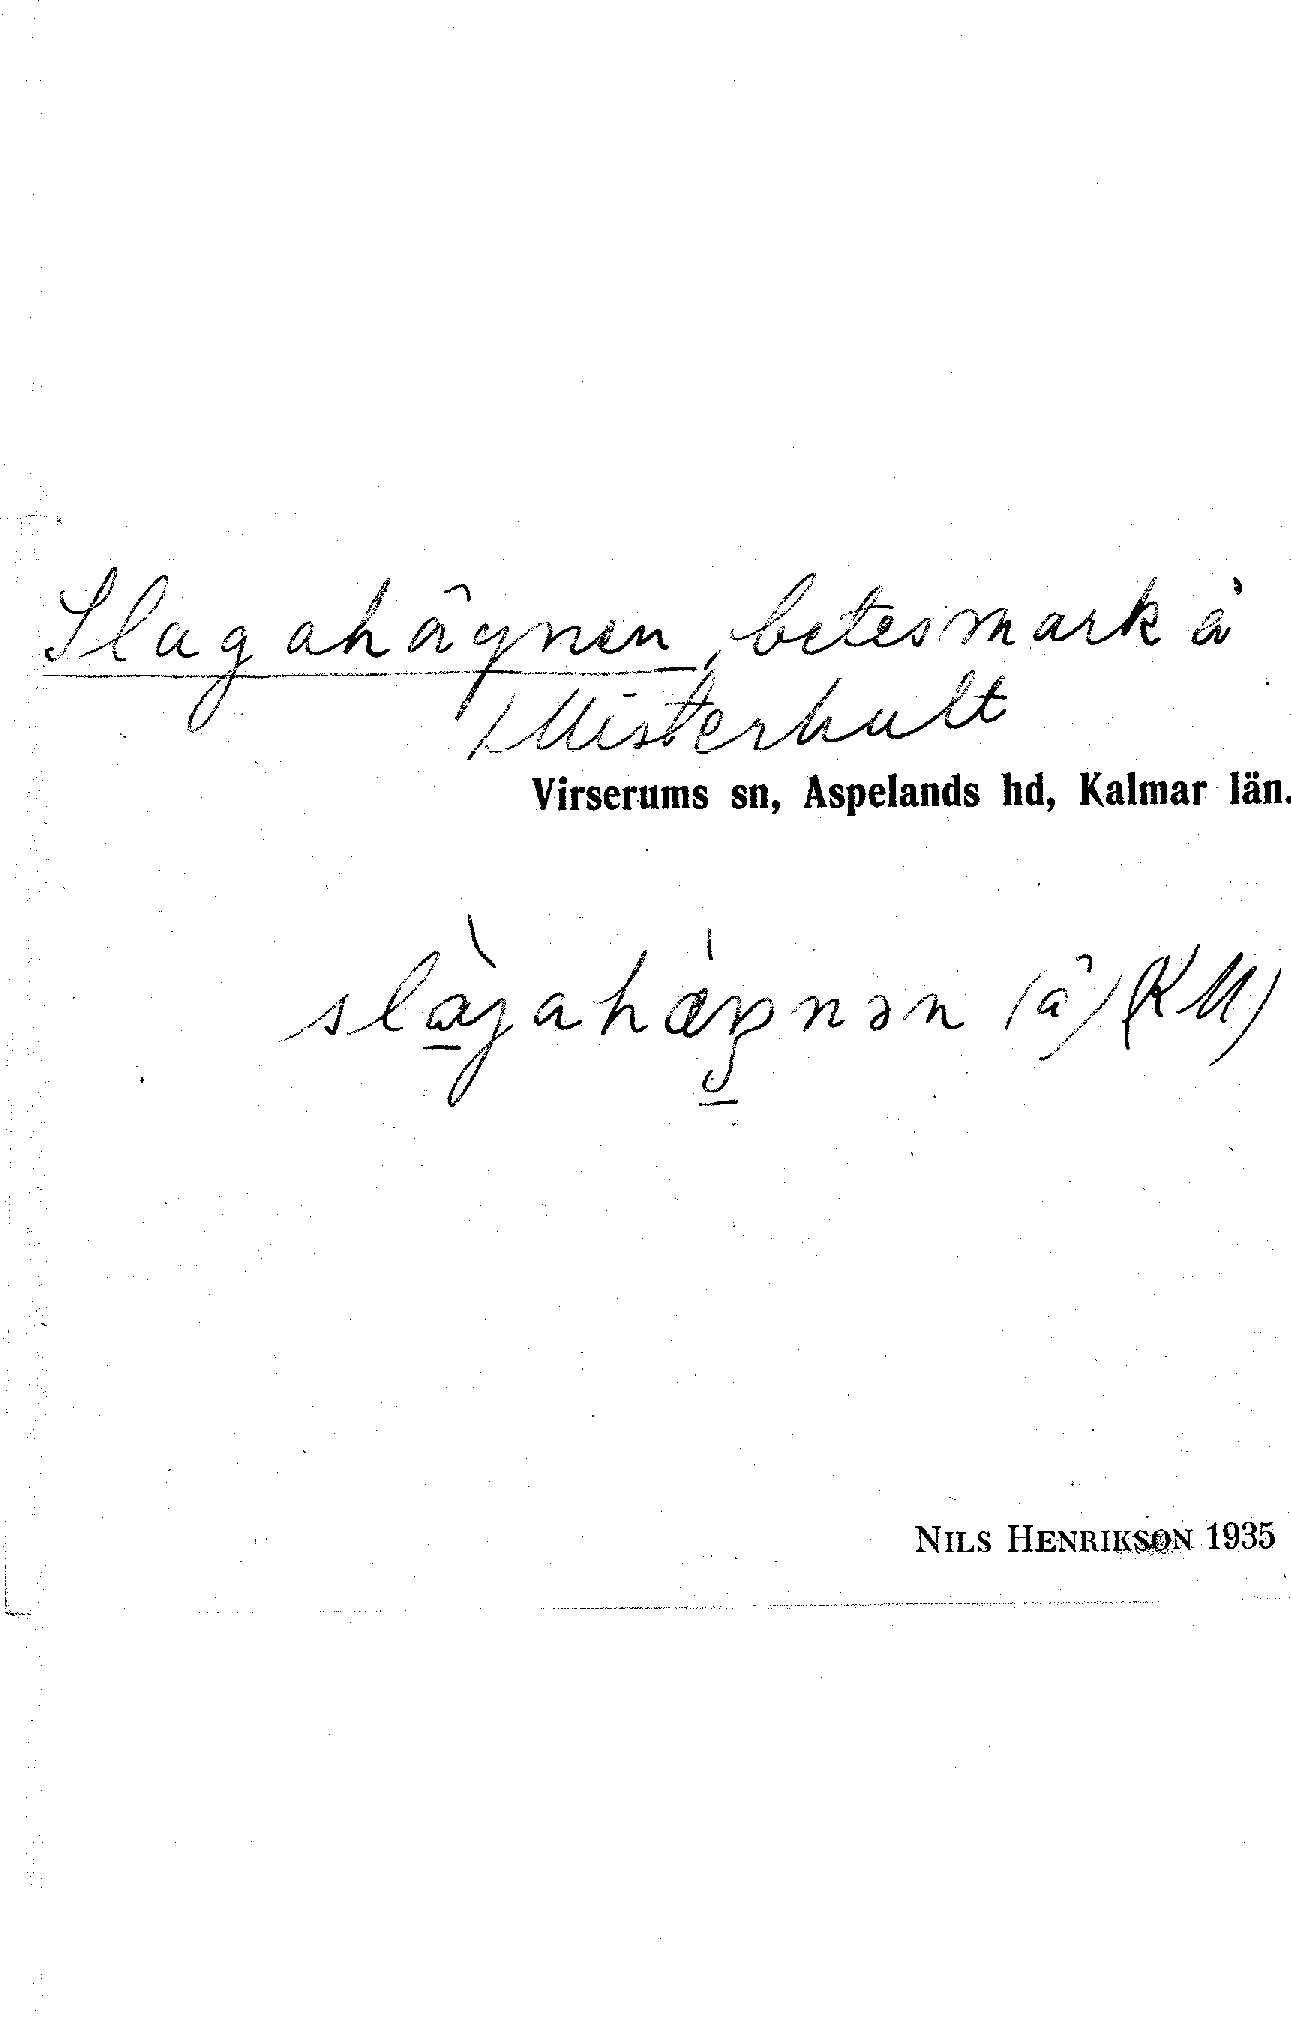 Slagahägnen, betesmark å
Misterhult
Virserums sn, Aspelands hd, Kalmar län.
(ä) (KM)
NILS HENRIKSON 1935